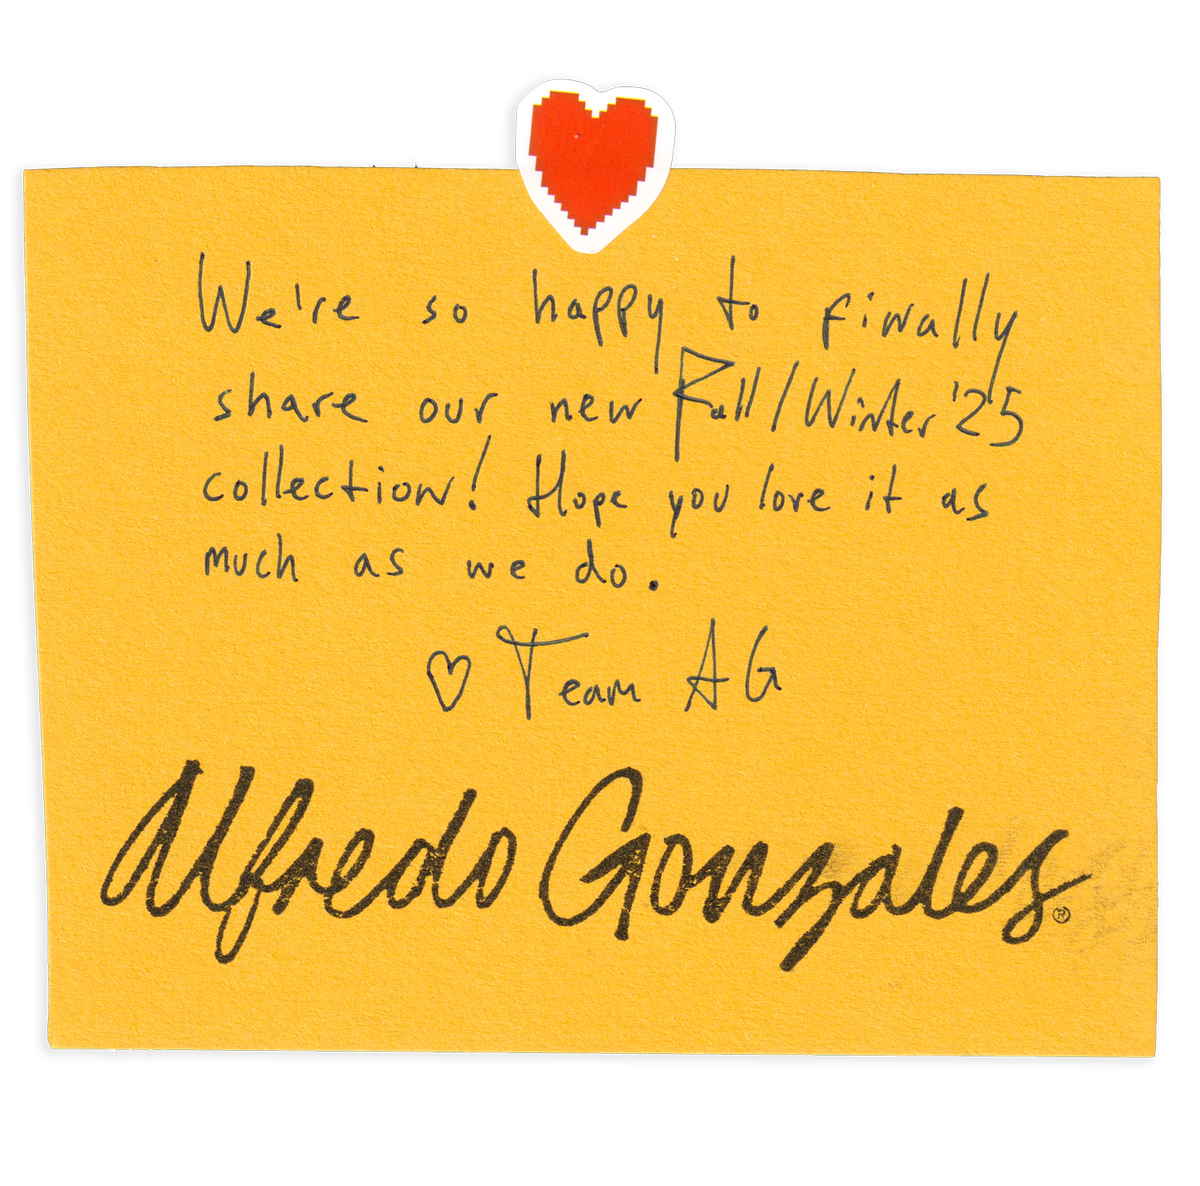 We're so happy to finally
share our new Fall/Winter '25
collection! Hope you love it as
much as we do.
♡ Team AG
Alfredo Gonzales®